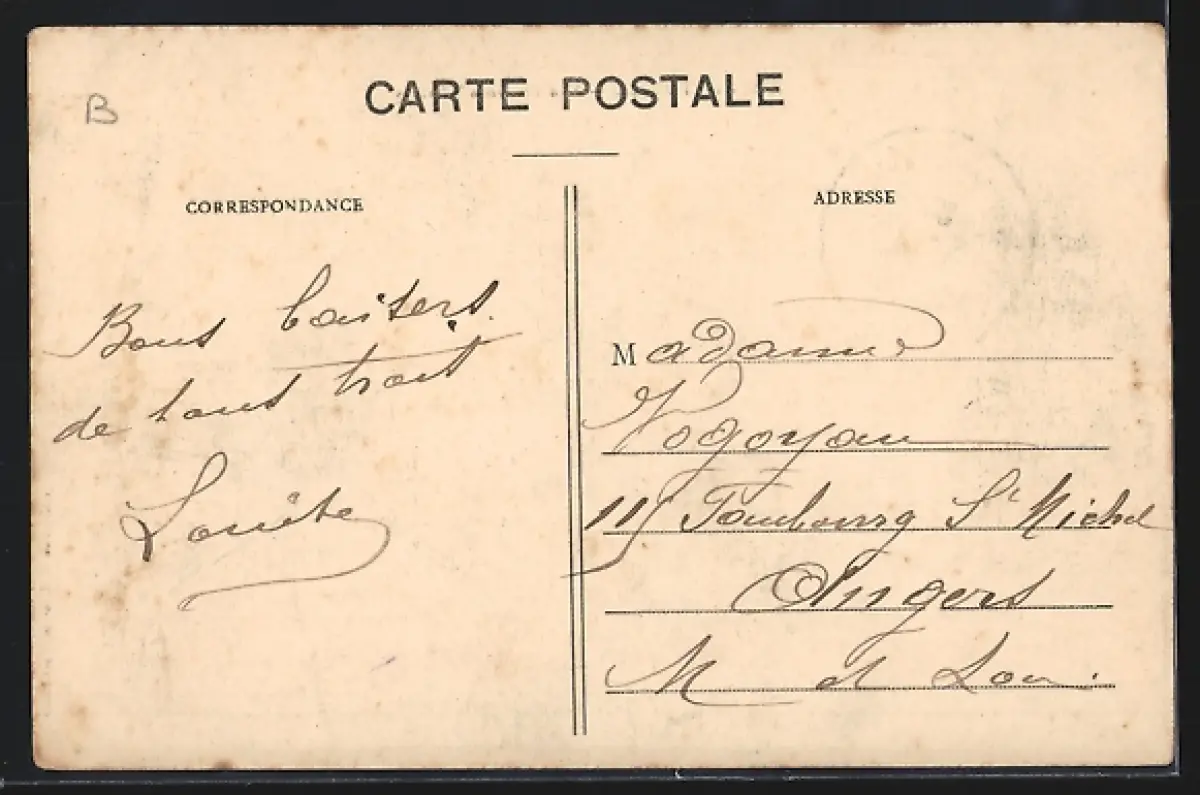 B
CARTE POSTALE
CORRESPONDANCE
Bons baisers.
de tous trait
Louise
ADRESSE
Madame
Nogoyau
115 Faubourg St Michel
Angers
M et Loi.